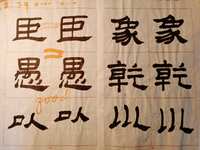 象乾川
象乾川
臣愚以
臣愚以
good